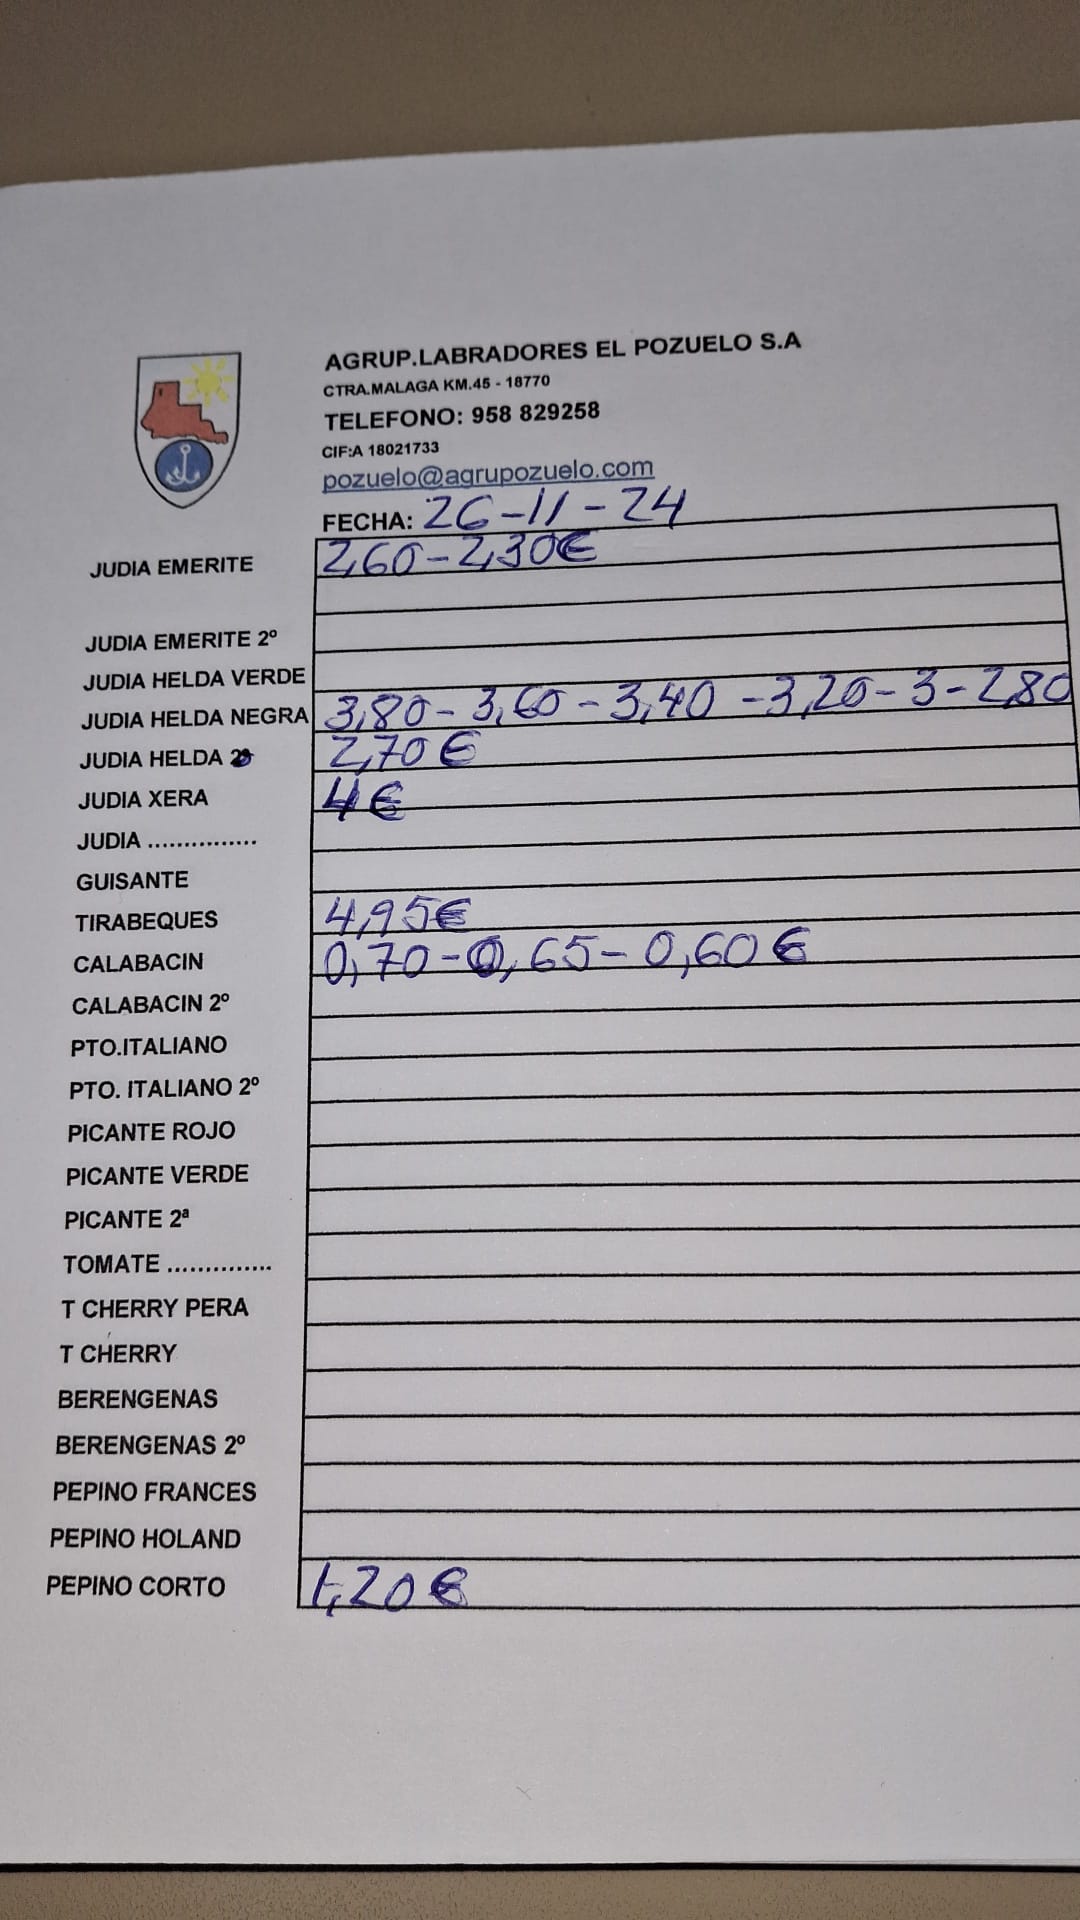 AGRUP.LABRADORES EL POZUELO S.A
CTRA.MALAGA KM.45 - 18770
TELEFONO: 958 829258
CIF:A 18021733
pozuelo@agrupozuelo.com
FECHA: 26-11-24
JUDIA EMERITE 2,60-2,30€
JUDIA EMERITE 2º
JUDIA HELDA VERDE
JUDIA HELDA NEGRA 3,80-3,60-3,40-3,20-3-2,80
JUDIA HELDA 2º 2,70€
JUDIA XERA 4€
JUDIA ...............
GUISANTE
TIRABEQUES 4,95€
CALABACIN 0,70-0,65-0,60€
CALABACIN 2º
PTO.ITALIANO
PTO. ITALIANO 2º
PICANTE ROJO
PICANTE VERDE
PICANTE 2ª
TOMATE ..............
T CHERRY PERA
T CHERRY
BERENGENAS
BERENGENAS 2º
PEPINO FRANCES
PEPINO HOLAND
PEPINO CORTO 1,20€